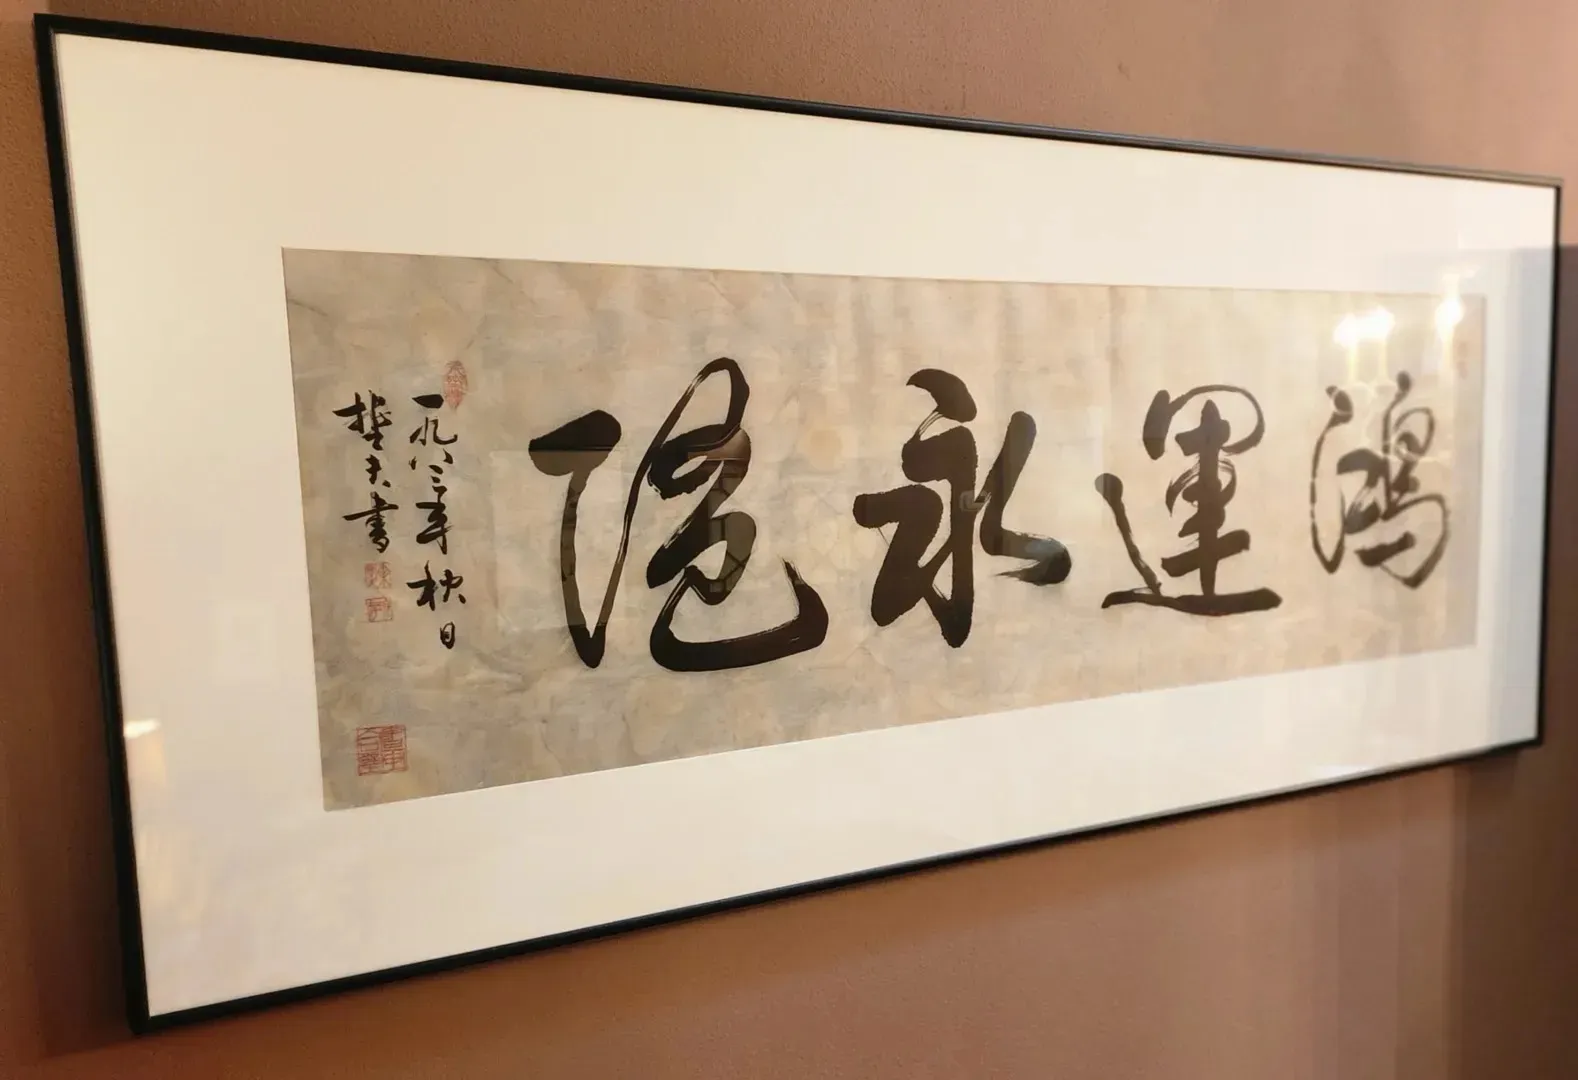 鴻運永隆
一九八三年秋日
夫書